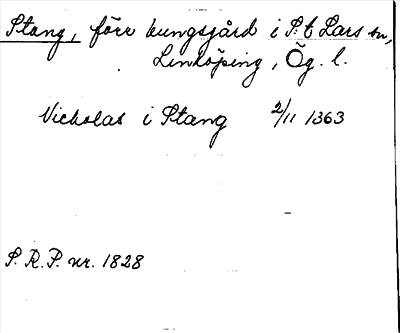 Stang, förr kungsgård i S:t Lars sn,
Linköping, Ög. l.
Nicholas i Stang 2/11 1363
S. R. P. nr. 1828